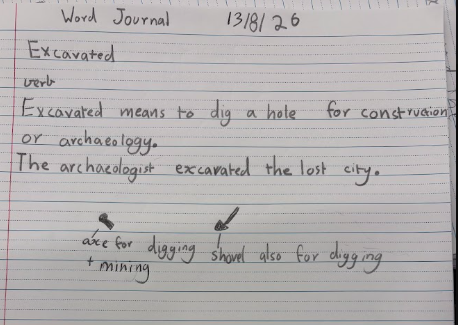 Word Journal 13/8/26
Excavated
verb
Excavated means to dig a hole for construction
or archaeology.
The archaeologist excavated the lost city.
axe for digging shovel also for digging
+ mining